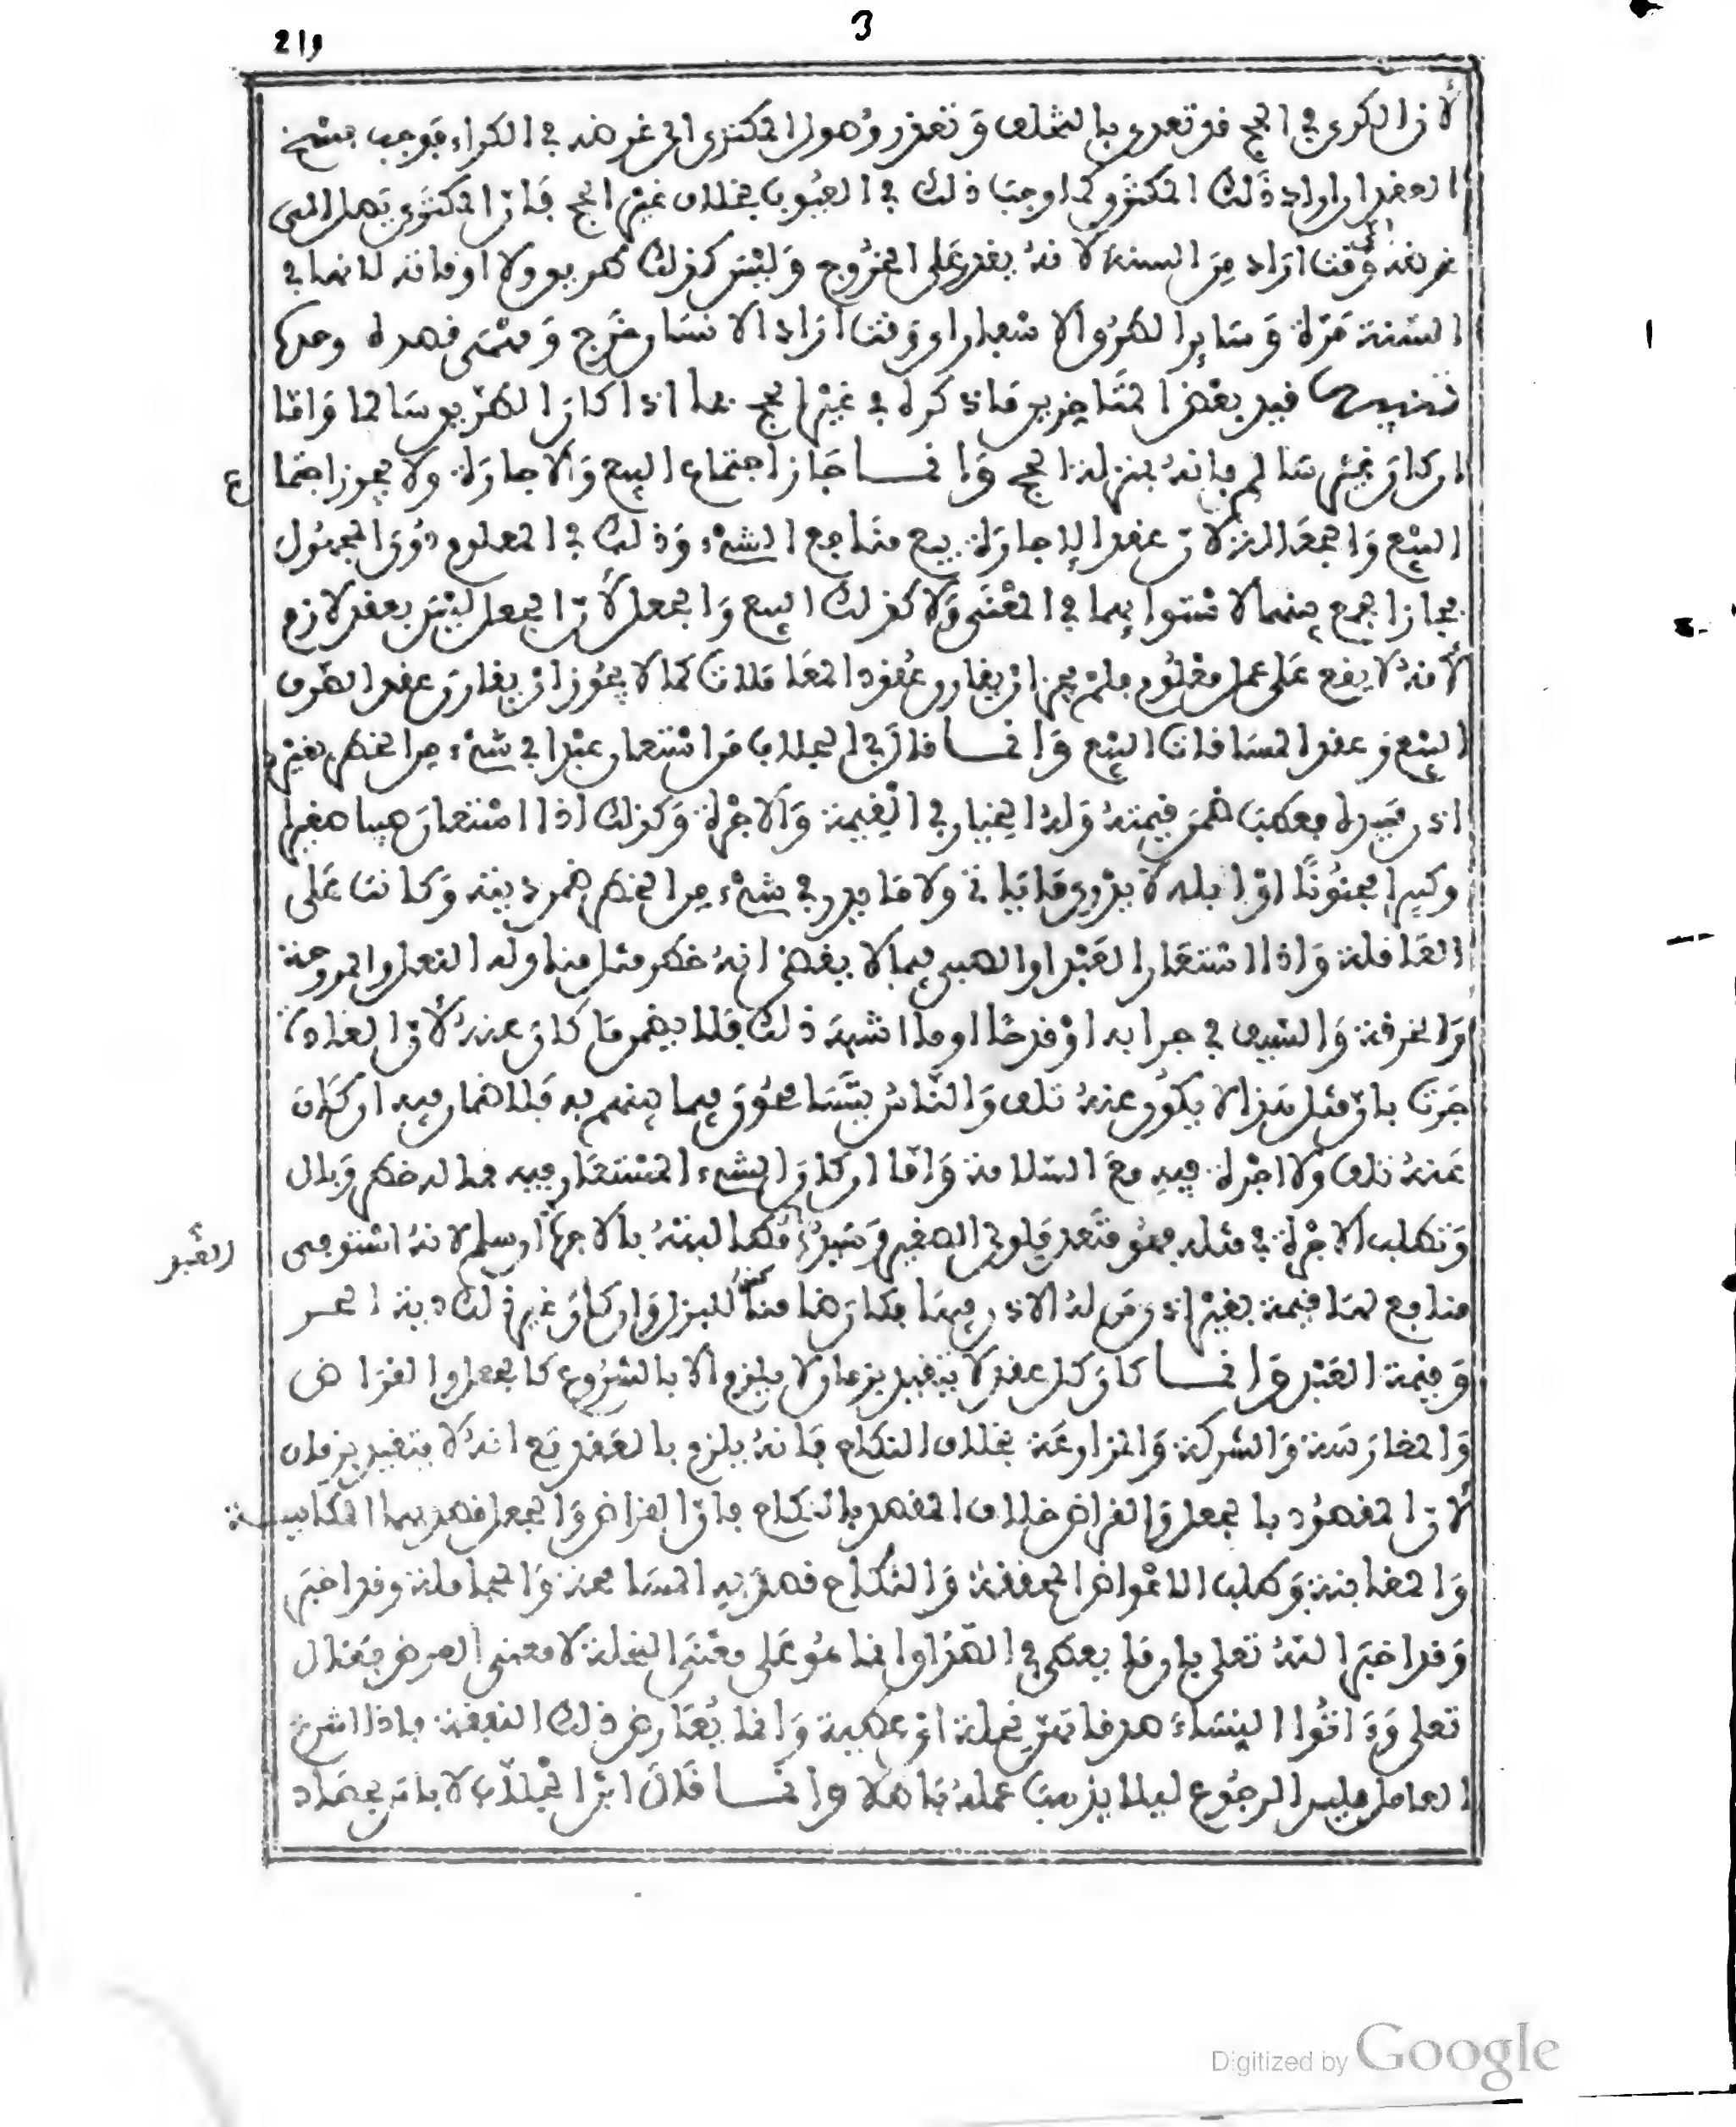 3
219
لأن الكري في الحج قد تعدى بالتخلف وتعذر وصول المكتري إلى غرضه في الكراء فوجب فسخ
العقد إن أراد ذلك المكتري كما وجب ذلك في العيوب بخلاف غير الحج فإن المكتري يصل إلى
غرضه أي وقت أراد من السنة لأنه يقدر على الخروج وليس كذلك طريق ولا أوقاته لأنها في
السنة مرة وسائر الطرق والأسفار أي وقت أراد الإنسان خرج ومتى قصده وجده
تنبيه قيد بعض المتأخرين ما ذكره في غير الحج بما إذا كان الطريق سالما وأما
إن كان غير سالم فإنه بمنزلة الحج وإنما جاز اجتماع البيع والإجارة ولا يجوز اجتما
ع
البيع والجعل لأن عقد الإجارة بيع منافع الشيء وذلك في المعلوم دون المجهول
فجاز الجمع بينهما لاستوائهما في المعنى ولا كذلك البيع والجعل لأن الجعل ليس بعقد لازم
لأنه لا يقع على عمل معلوم فلم يجز أن يقارن عقود المعاملات كما لا يجوز أن يقارن عقد الصرف
البيع وعقد المساقات البيع وإنما قال في الجلاب من استعار عبدا في شيء من الخطر بغير
إذن سيده فعطب ضمن قيمته وله الخيار في القيمة والأجرة وكذلك إذا استعار صبيا صغيرا
وكبيرا مجنونا أو أبله لا يدري ما يأتي ولا ما يدر في شيء من الخطر ضمن ديته وكانت على
العاقلة وإذا استعار العبد أو الصبي فيما لا يقضى أنه خطر مثل مناوله النعل والمروحة
والخرقة والسيف في جرابه أو قدحا أو ما أشبه ذلك فلا يضمن ما كان عنده لأن العادة
جرت بأن مثل هذا لا يكون عنده تلف والناس يتسامحون فيما بينهم به فلا ضمان فيه إن كان
عنده تلف ولا أجرة فيه مع السلامة وأما إن كان الشيء المستعار فيه مما له خطر وبال
وتطلب الأجرة في مثله فهو متعد فلولي الصغير وسيد مطالبته بالأجرة إن سلم لأنه استوفى
العبد
منافع لها قيمة بغير إذن من له الإذن فيها فكان ضامنا كذلك وإن كان غير ذلك دية الحر
وقيمة العبد وإنما كان كل عقد لا يتقيد بزمان لا يلزم إلا بالشروع كالجعل والقراض
والمغارسة والشركة والمزارعة بخلاف النكاح فإنه يلزم بالعقد مع أنه لا يتقيد بزمان
لأن المقصود بالجعل والقراض خلاف المقصد بالنكاح فإن القراض والجعل قصد بهما المكايسة
والمغابنة وطلب الأعواض المحققة والنكاح قصد به المسامحة والمجاملة وقد أخبر
وقد أخبر الله تعلى بأن ما يعطى في الصداق إنما هو على معنى النحلة لا معنى العوض فقال
تعلى وءاتوا النساء صدقاتهن نحلة أي عطية وإنما يعارض ذلك النفقة فإذا شرع
العامل فليس الرجوع ليلا يذهب عمله باطلا وإنما قال ابن الجلاب لا بأس بحصاد